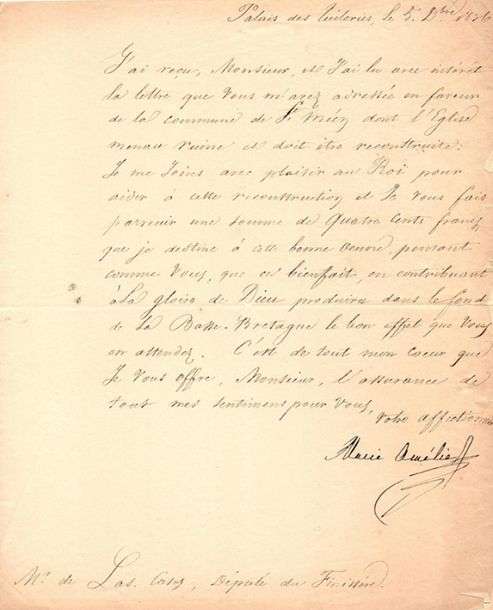 Palais des Tuileries, le 5. Dbre 1836
J'ai reçu, Monsieur, et J'ai lu avec intérêt
la lettre que vous m'avez adressée en faveur
de la commune de St. Méen dont l'Eglise
menace ruine et doit être reconstruite.
Je me Joins avec plaisir au Roi pour
aider à cette reconstruction et Je vous fais
parvenir une somme de Quatre Cents francs
que je destine à cette bonne oeuvre, pensant
comme Vous, que ce bienfait, en contribuant
à La gloire de Dieu produira dans le fond
de La Basse-Bretagne le bon effet que Vous
en attendez. C'est de tout mon Coeur que
Je Vous offre, Monsieur, l'assurance de
tous mes sentimens pour Vous,
Votre affectionnée
Marie Amélie
Mr. de Las Cases, Député du Finistère.